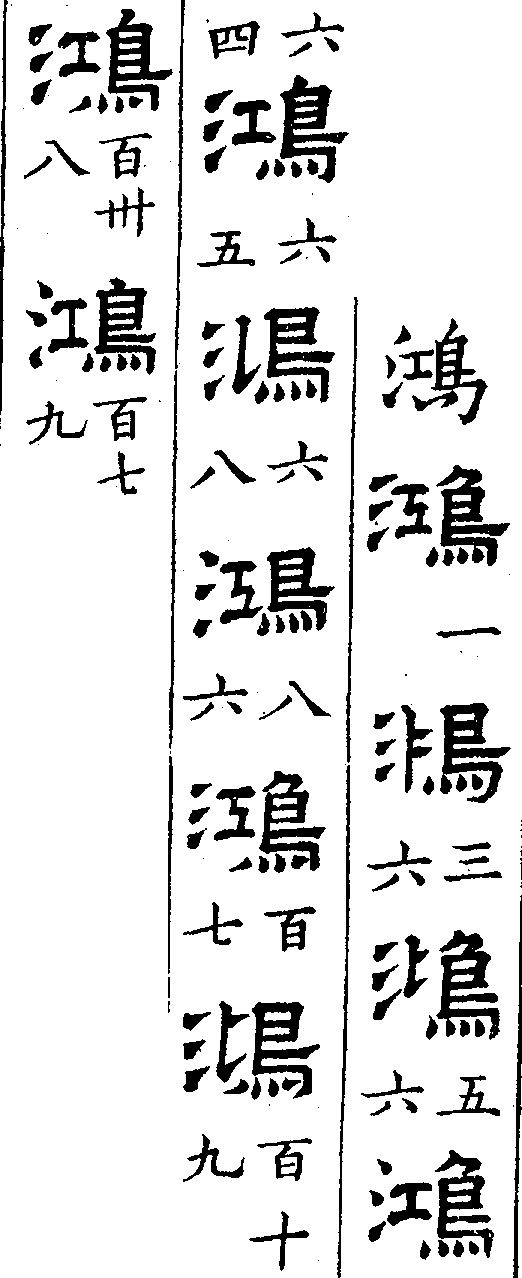 鴻鴻一鴻三六鴻五六鴻
六四鴻六五鴻六八鴻八六鴻百七鴻百十九
鴻百卅八鴻百七九